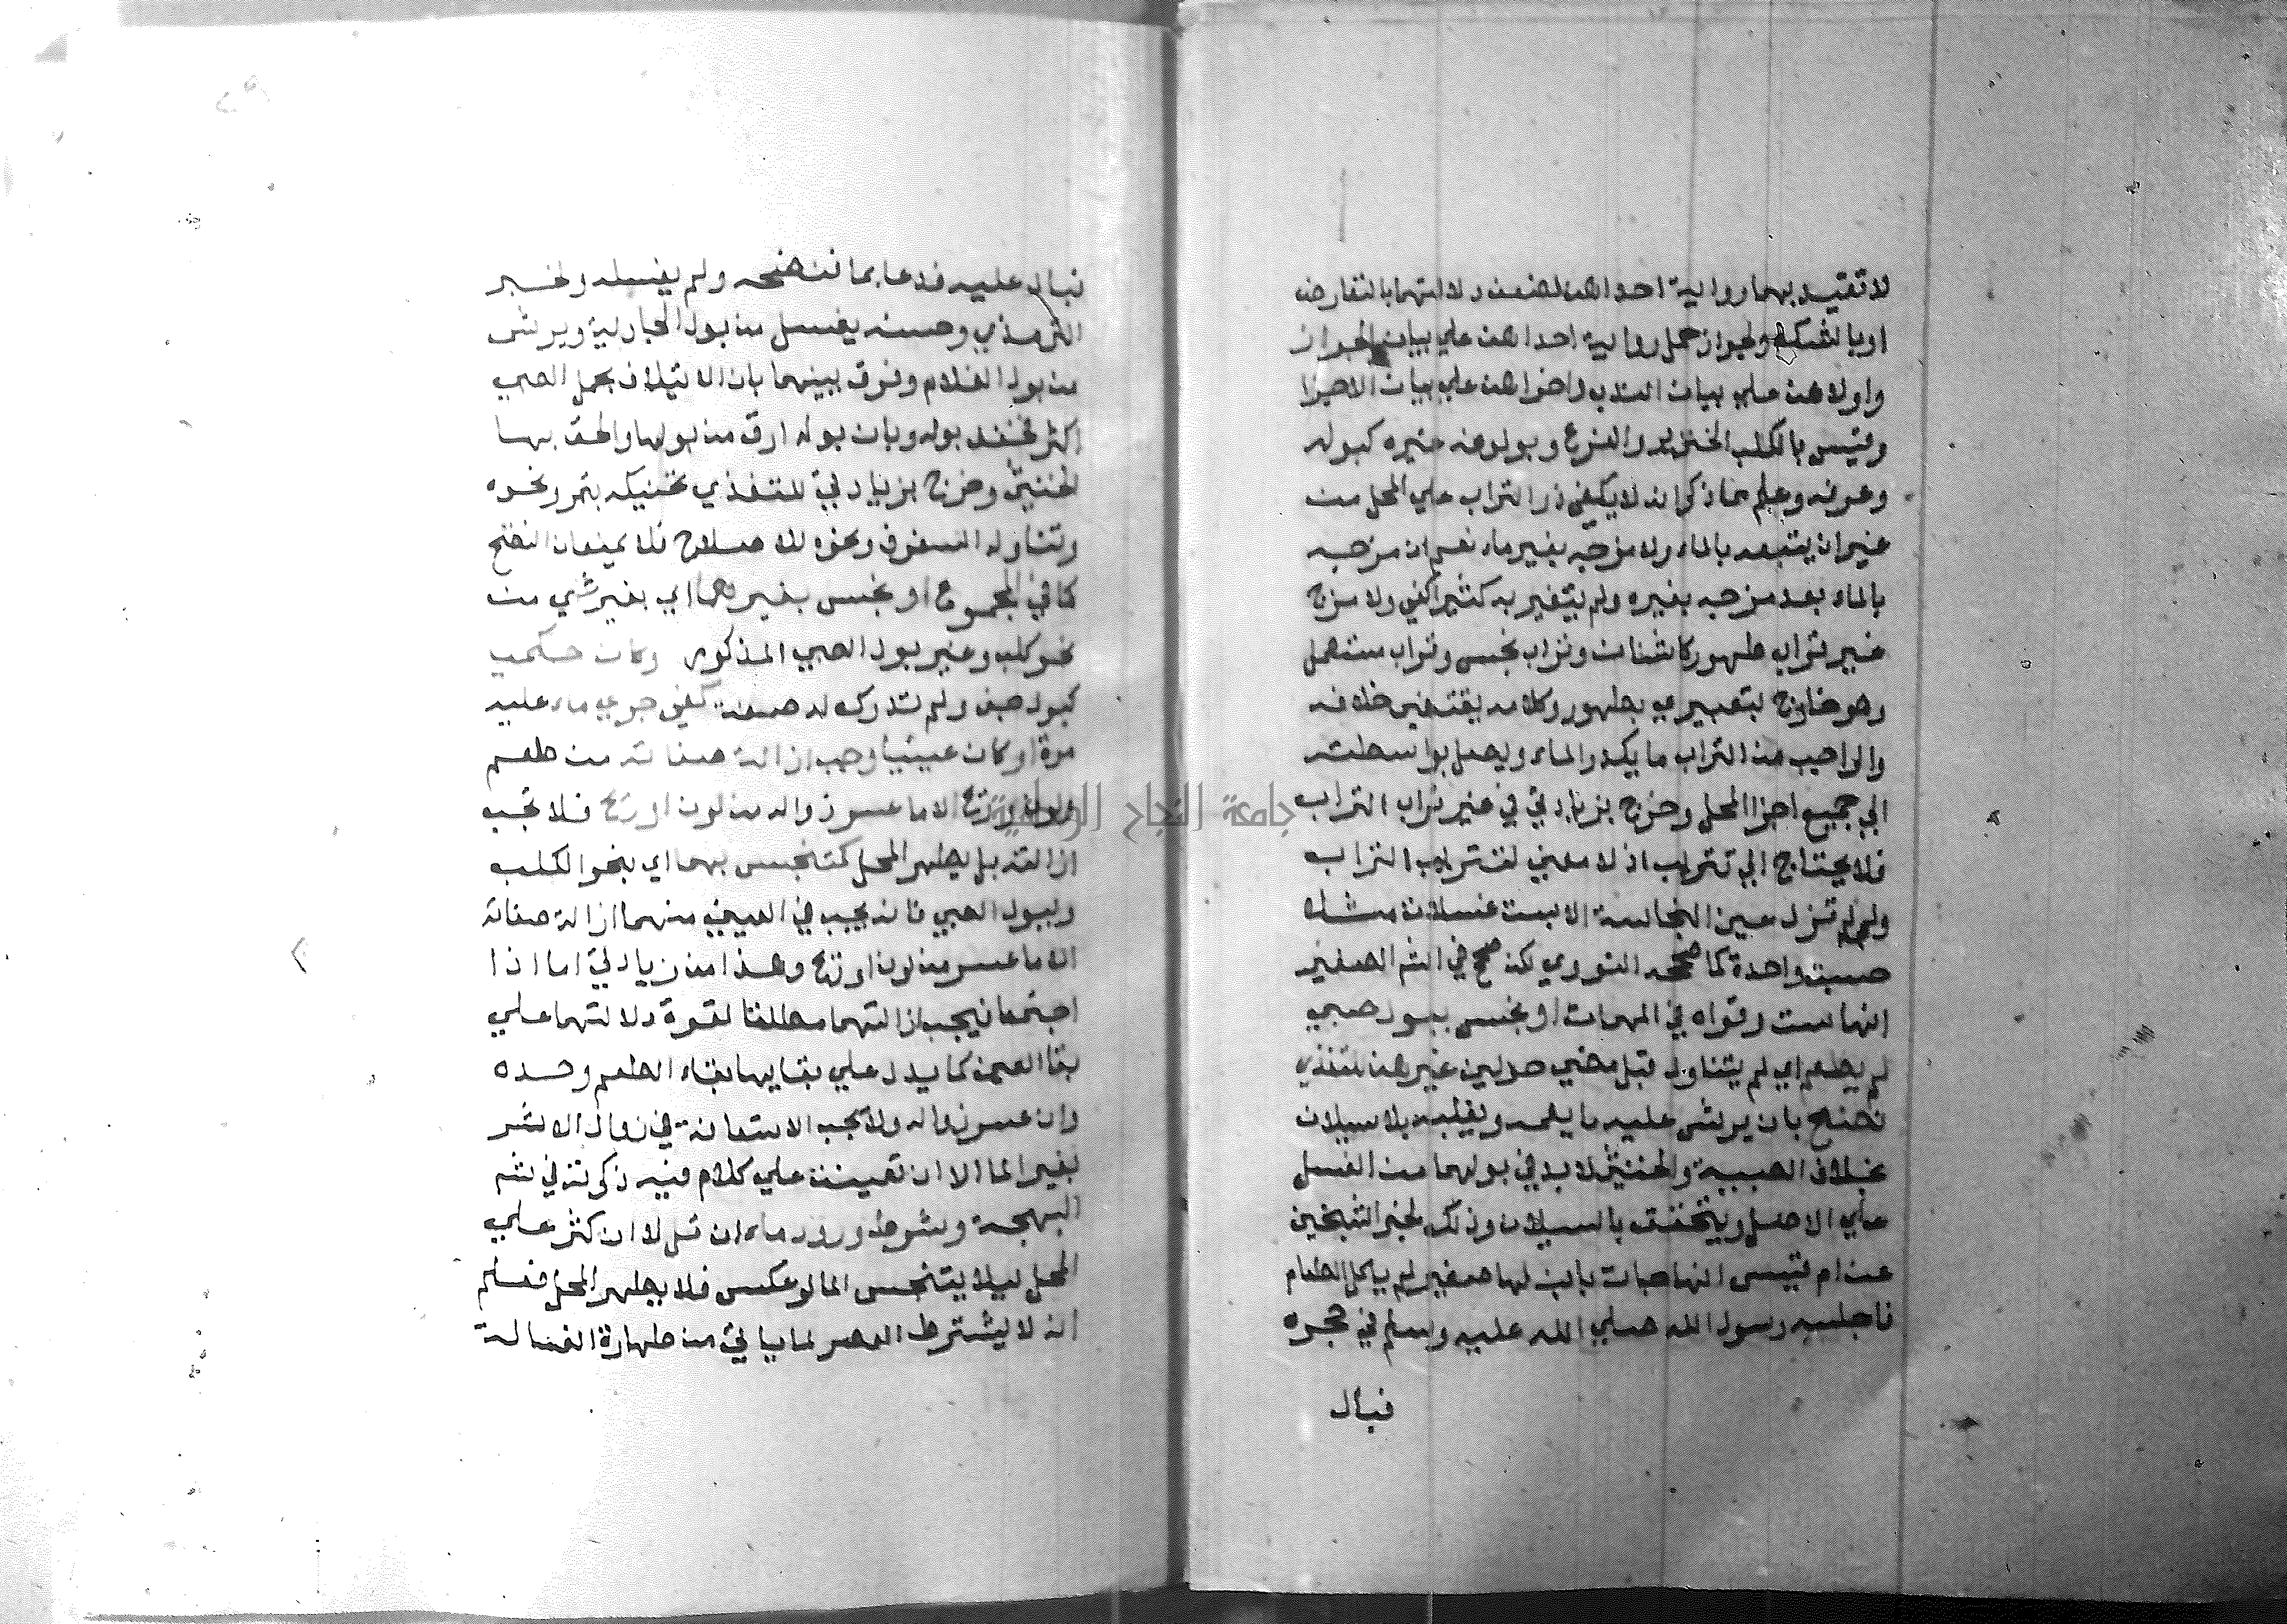 لا تقييد بهما رواية احداهن لضعف دلالتهما بالتعارض
او بالشك ولجواز حمل رواية احداهن علي بيان الجواز
واولاهن علي بيان الندب واخراهن علي بيان الاجزا
وقيس بالكلب الخنزير والفرع وببوله غيره كبوله
وعرقه وعلم مما ذكر انه لا يكفي ذر التراب علي المحل من
غير ان يتبعه بالماء ولا مزجه بغير ماء نعم ان مزجه
بالماء بعد مزجه بغيره ولم يتغير به كثيرا كفي ولا مزج
غير تراب طهور كاشنان وتراب نجس وتراب مستعمل
وهو خارج بتعبيري بطهور وكلامه يقتضي خلافه
والواجب من التراب ما يكدر الماء ويصل بواسطته
الي جميع اجزا المحل وخرج بزيادتي في غير تراب التراب
فلا يحتاج الي تتريب اذ لا معني لتتريب التراب
ولو لم تزل عين النجاسة الا بست غسلات مثلا
حسبت واحدة كما صححه النووي لكن صحح في الشرح الصغير
انها ست وقواه في المهمات او نجس ببول صبي
لم يطعم اي لم يتناول قبل مضي حولين غير لبن للتغذي
نضح بان يرش عليه ما يعمه ويغلبه بلا سيلان
بخلاف الصبية والخنثي لا بد في بولهما من الغسل
علي الاصل ويتحقق بالسيلان وذلك لخبر الشيخين
عن ام قيس انها جات بابن لها صغير لم ياكل الطعام
فاجلسه رسول الله صلي الله عليه وسلم في حجره
فبال
فبال عليه فدعا بما فنضحه ولم يغسله ولخبر
الترمذي وحسنه يغسل من بول الجارية ويرش
من بول الغلام وفرق بينهما بان الايتلاف بحمل الصبي
اكثر فخفف بوله وبان بوله ارق من بولها والحق بها
الخنثي وخرج بزيادتي للتغذي تحنيكه بتمر ونحوه
وتناوله السفوف ونحوه للاصلاح فلا يمنعان النضح
كما في المجموع او نجس بغيرهما اي بغير شي من
نحو كلب وغير بول الصبي المذكور وكان حكميا
كبول جف ولم تدرك له صفة كفي جري ماء عليه
مرة او كان عينيا وجب ازالة صفاته من طعم
ولون وريح الا ما عسر زواله من لون او ريح فلا تجب
ازالته بل يطهر المحل كمتنجس بهما اي بنحو الكلب
وببول الصبي فانه يجب في العيني منهما ازالة صفاته
الا ما عسر من لون او ريح وهذا من زيادتي اما اذا
اجتمعا فيجب ازالتهما مطلقا لقوة دلالتهما علي
بقا العين كما يدل علي بقايها بقاء الطعم وحده
وان عسر زواله ولا تجب الاستعانة في زوال الاثر
بغير الما الا ان تعينت علي كلام فيه ذكرته في شرح
البهجة وشرط ورود ماء ان قل لا ان كثر علي
المحل ليلا يتنجس الما لو عكس فلا يطهر المحل فعلم
انه لا يشترط العصر لما ياتي من طهارة الغسالة
جامعة النجاح الوطنية